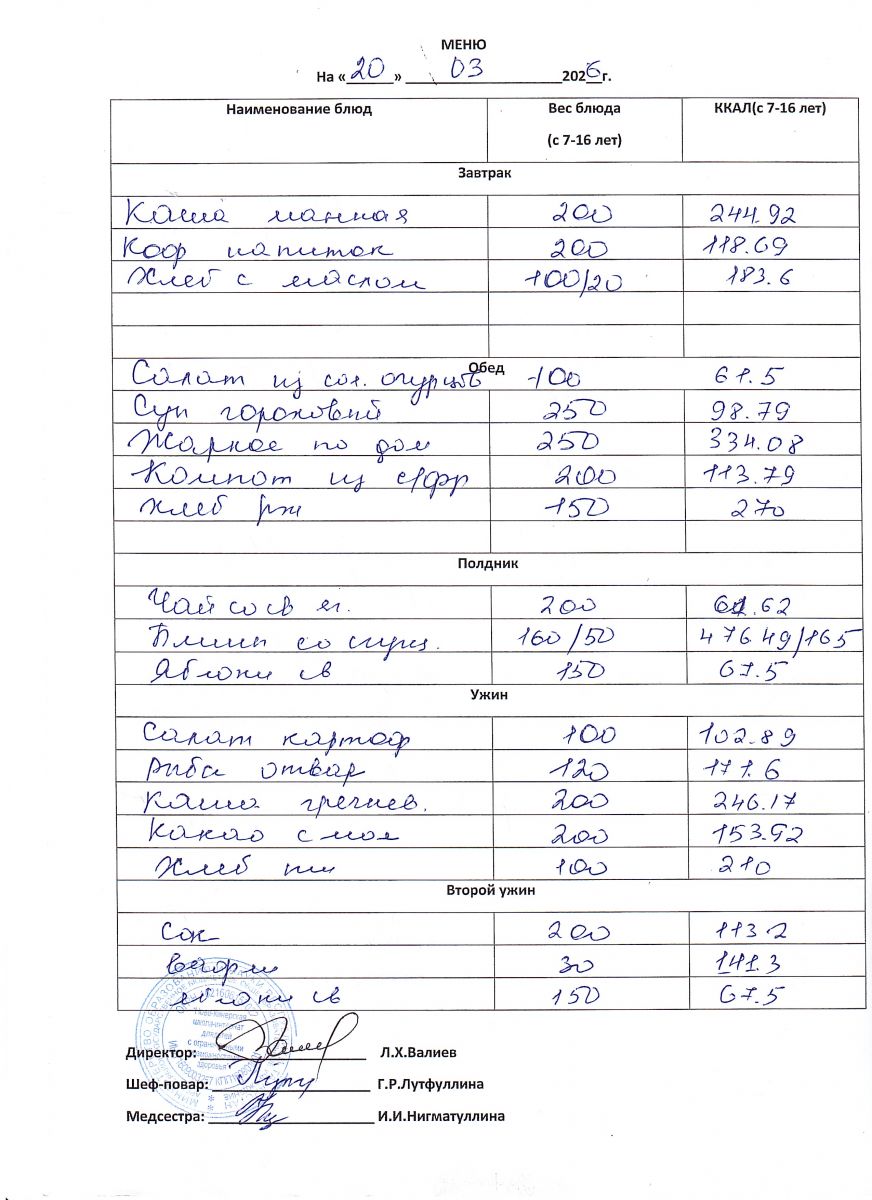 МЕНЮ
На « 20 » 03 2026 г.
Наименование блюд Вес блюда (с 7-16 лет) ККАЛ(с 7-16 лет)
Завтрак
Каша манная 200 244.92
Коф напиток 200 118.69
Хлеб с маслом 100/20 183.6
Обед
Салат из сол. огурцов 100 61.5
Суп гороховый 250 98.79
Жаркое по дом 250 334.08
Компот из с/фр 200 113.79
Хлеб рж 150 270
Полдник
Чай со св яг. 200 .62
Блины со сгущ. 160/50 476.49/165
Яблоки св 150 67.5
Ужин
Салат картоф 100 102.89
Рыба отвар 120 171.6
Каша гречнев. 200 246.17
Какао с мол 200 153.92
Хлеб пш 100 210
Второй ужин
Сок 200 113.2
Вафли 30 141.3
яблоки св 150 67.5
Директор: Л.Х.Валиев
Шеф-повар: Г.Р.Лутфуллина
Медсестра: И.И.Нигматуллина